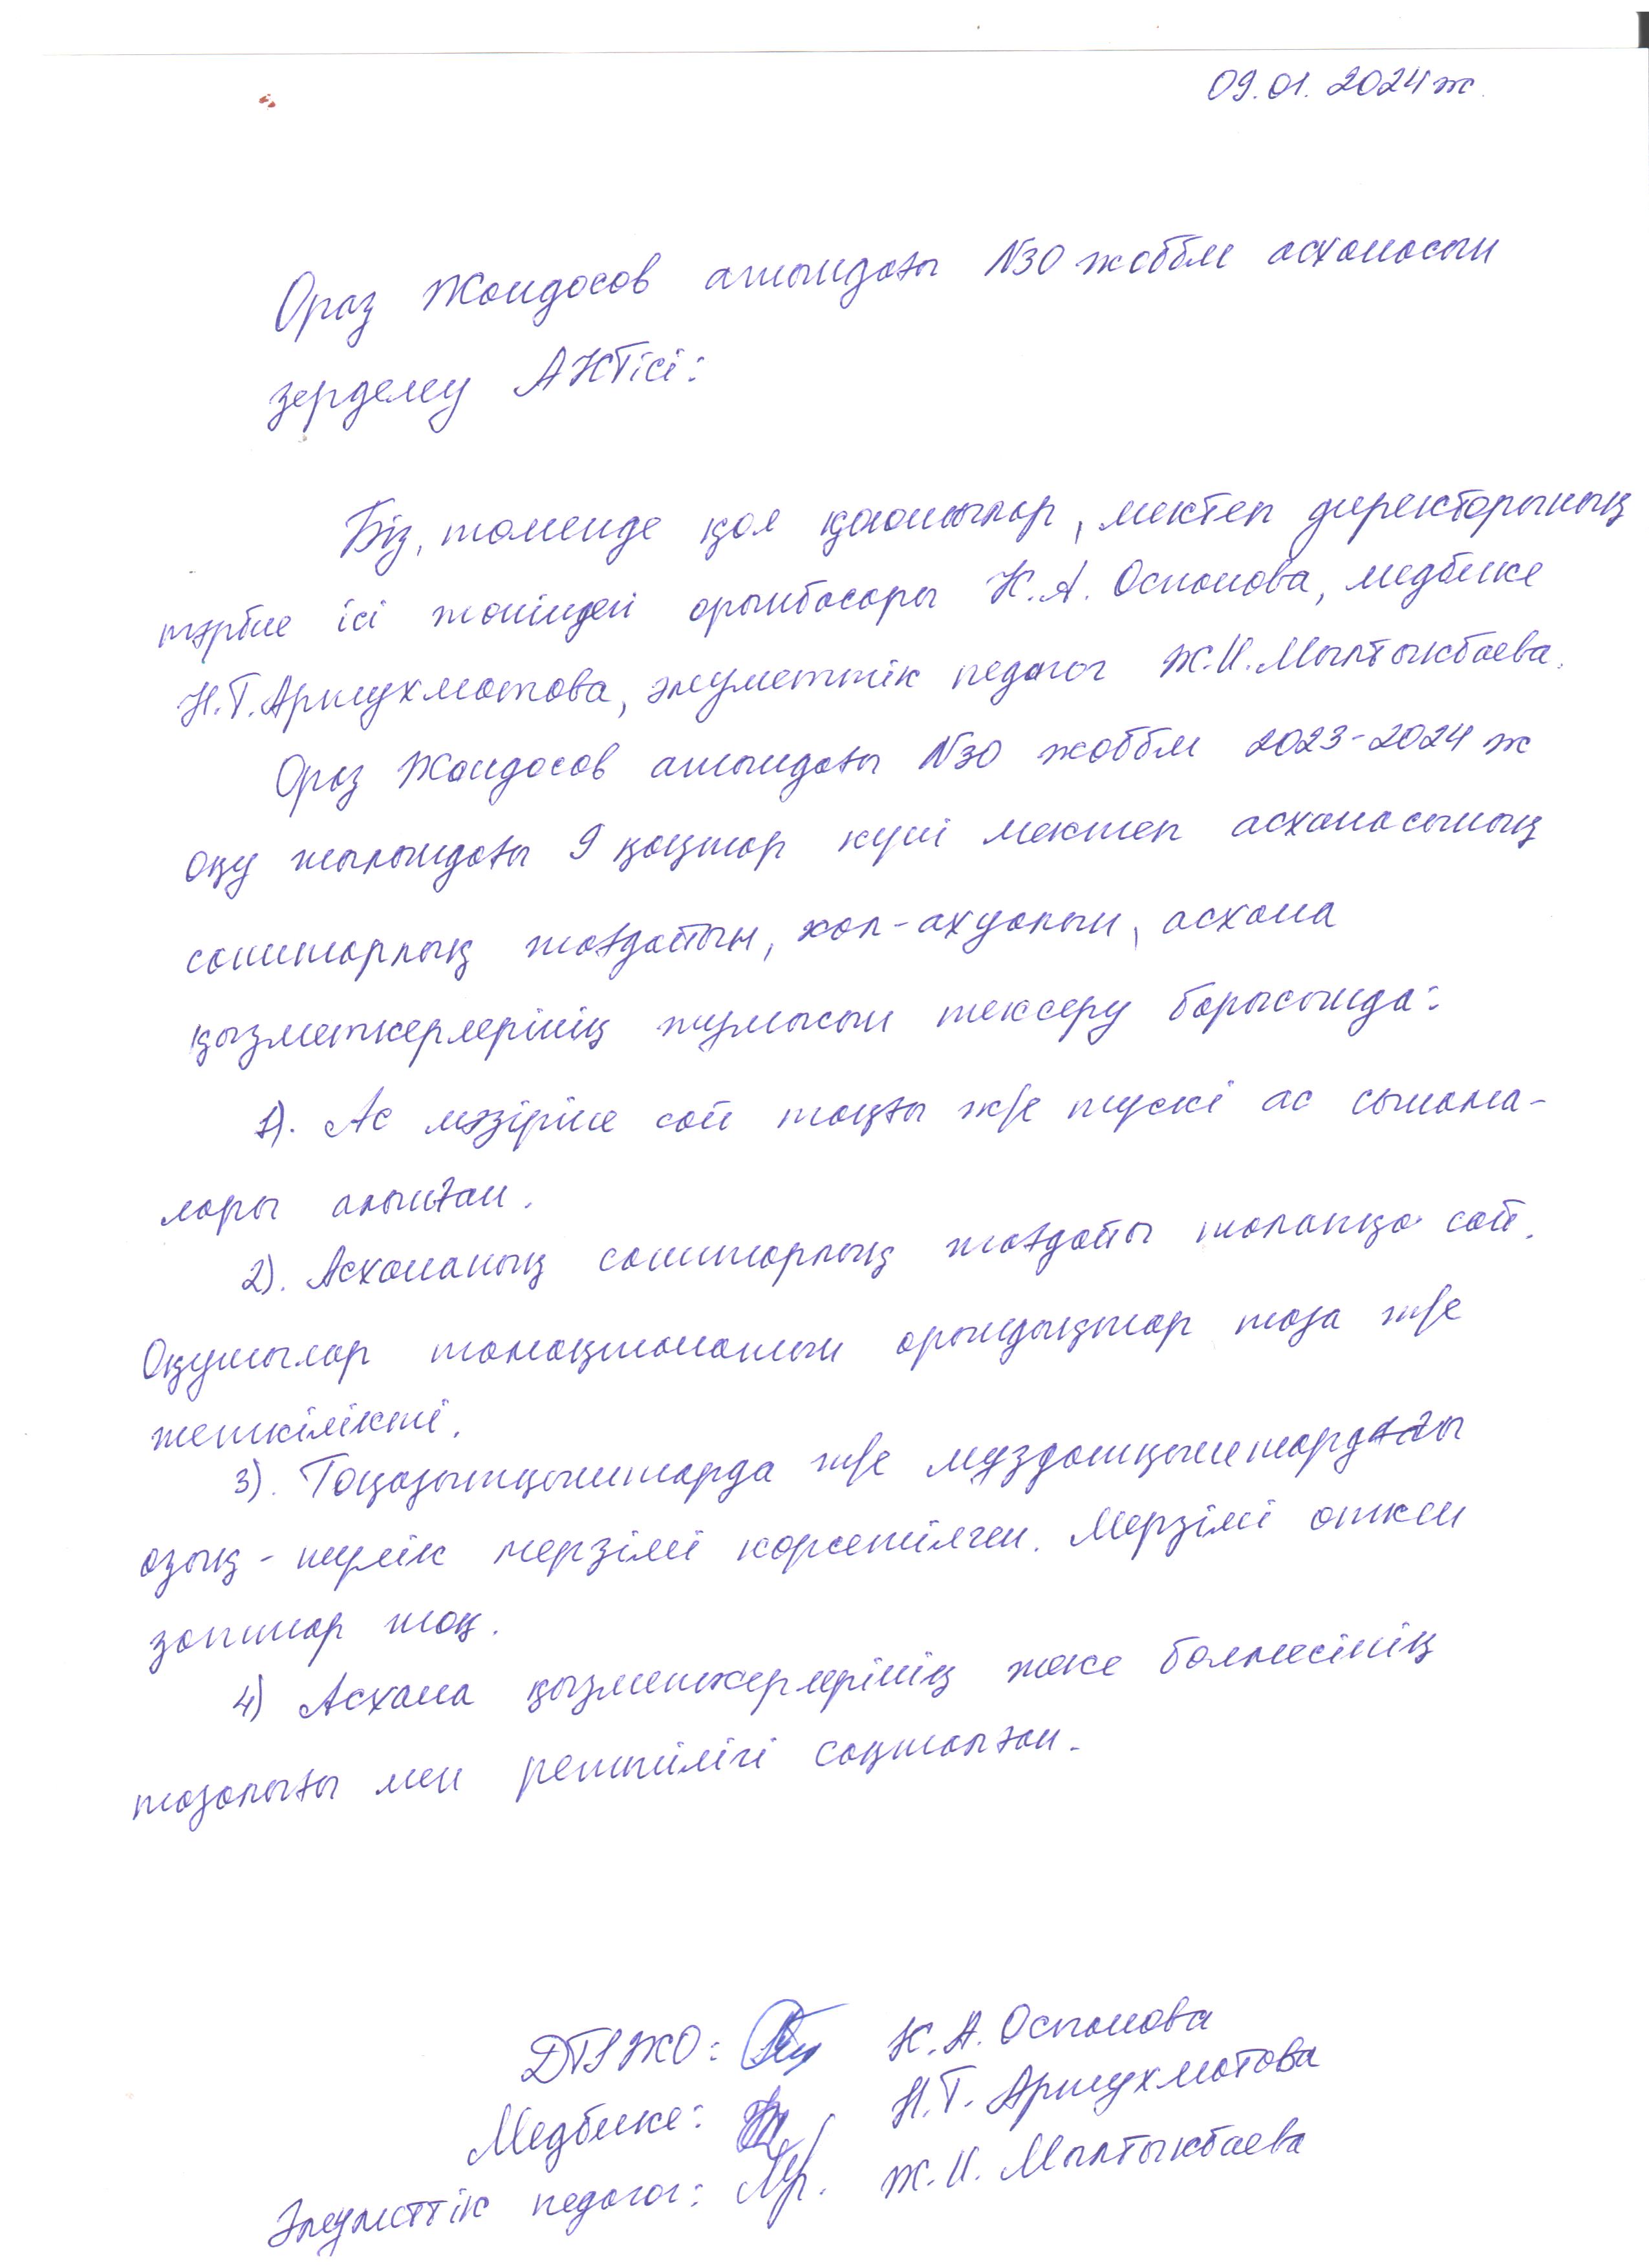 09.01.2024 ж.
Ораз Жандосов атындағы №30 жоббм асханасын
зерделеу АКТісі:
Біз, төменде қол қоюшылар, мектеп директорының
тәрбие ісі жөніндегі орынбасары К.А. Оспанова, медбике
Н.Т. Аришухматова, әлуметтік педагог Ж.И. Мылтыкбаева.
Ораз Жандосов атындағы №30 жоббм 2023-2024 ж
оқу жылындағы 9 қаңтар күні мектеп асханасының
санитарлық жағдайын, хал-ахуалын, асхана
қызметкерлерінің жұмысын тексеру барысында:
1). Ас мәзіріне сай таңғы ж/е түскі ас сынама-
лары алынған.
2). Асхананың санитарлық жағдайы талапқа сай.
Оқушылар тамақтанатын орындықтар таза ж/е
жеткілікті.
3). Тоңазытқыштарда ж/е мұздатқыштардағы
азық-түлік мерзімі көрсетілген. Мерзімі өткен
заттар жоқ.
4) Асхана қызметкерлерінің жеке бөлмесінің
тазалығы мен реттілігі сақталған.
ДТІЖО: К.А. Оспанова
Медбике: Н.Т. Аришухматова
Әлуметтік педагог: Ж.И. Мылтыкбаева